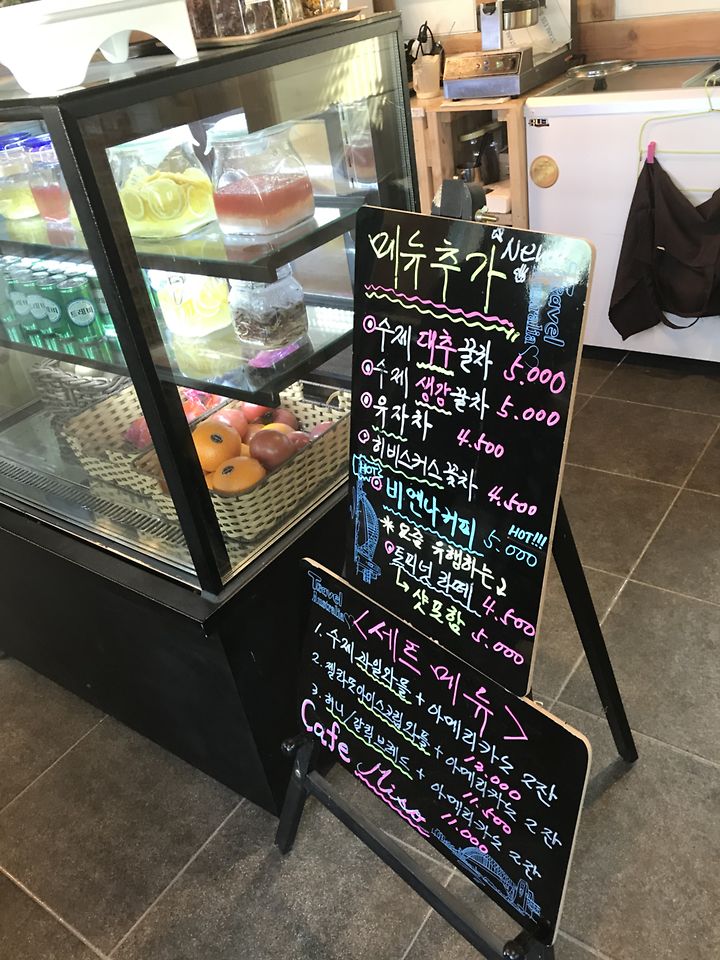 메뉴추가
수제 대추꿀차 5.000
수제 생강꿀차 5.000
유자차 4.500
히비스커스꽃차 4.500
HOT
비엔나커피 5.000
HOT!!!
※요즘 유행하는
돌피넛 라떼 4.500
↳ 샷포함 5.000
Travel
Australia
Travel
Australia
<세트 메뉴>
1. 수제 과일와플 + 아메리카노 2잔 12.000
2. 젤라또아이스크림와플 + 아메리카노 2잔 11.500
3. 허니/갈릭브레드 + 아메리카노 2잔 11.000
Cafe Miso
트레비